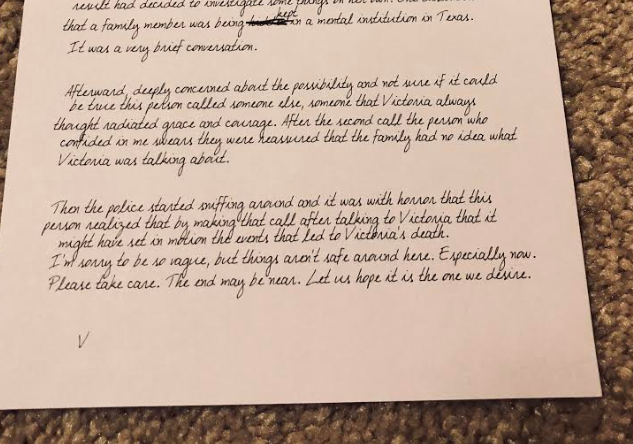 result had decided to investigate some things on her own. She
that a family member was being kept in a mental institution in Texas.
It was a very brief conversation.
Afterward, deeply concerned about the possibility and not sure if it could
be true this person called someone else, someone that Victoria always
thought radiated grace and courage. After the second call the person who
confided in me swears they were reassured that the family had no idea what
Victoria was talking about.
Then the police started sniffing around and it was with horror that this
person realized that by making that call after talking to Victoria that it
might have set in motion the events that led to Victoria's death.
I'm sorry to be so vague, but things aren't safe around here. Especially now.
Please take care. The end may be near. Let us hope it is the one we desire.
V